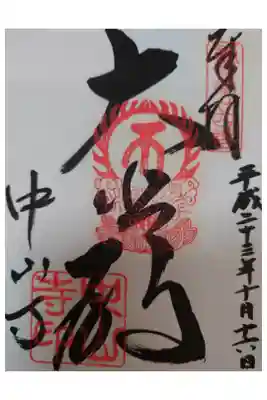 奉拝
平成二十三年十月十六日
大悲殿
中山寺